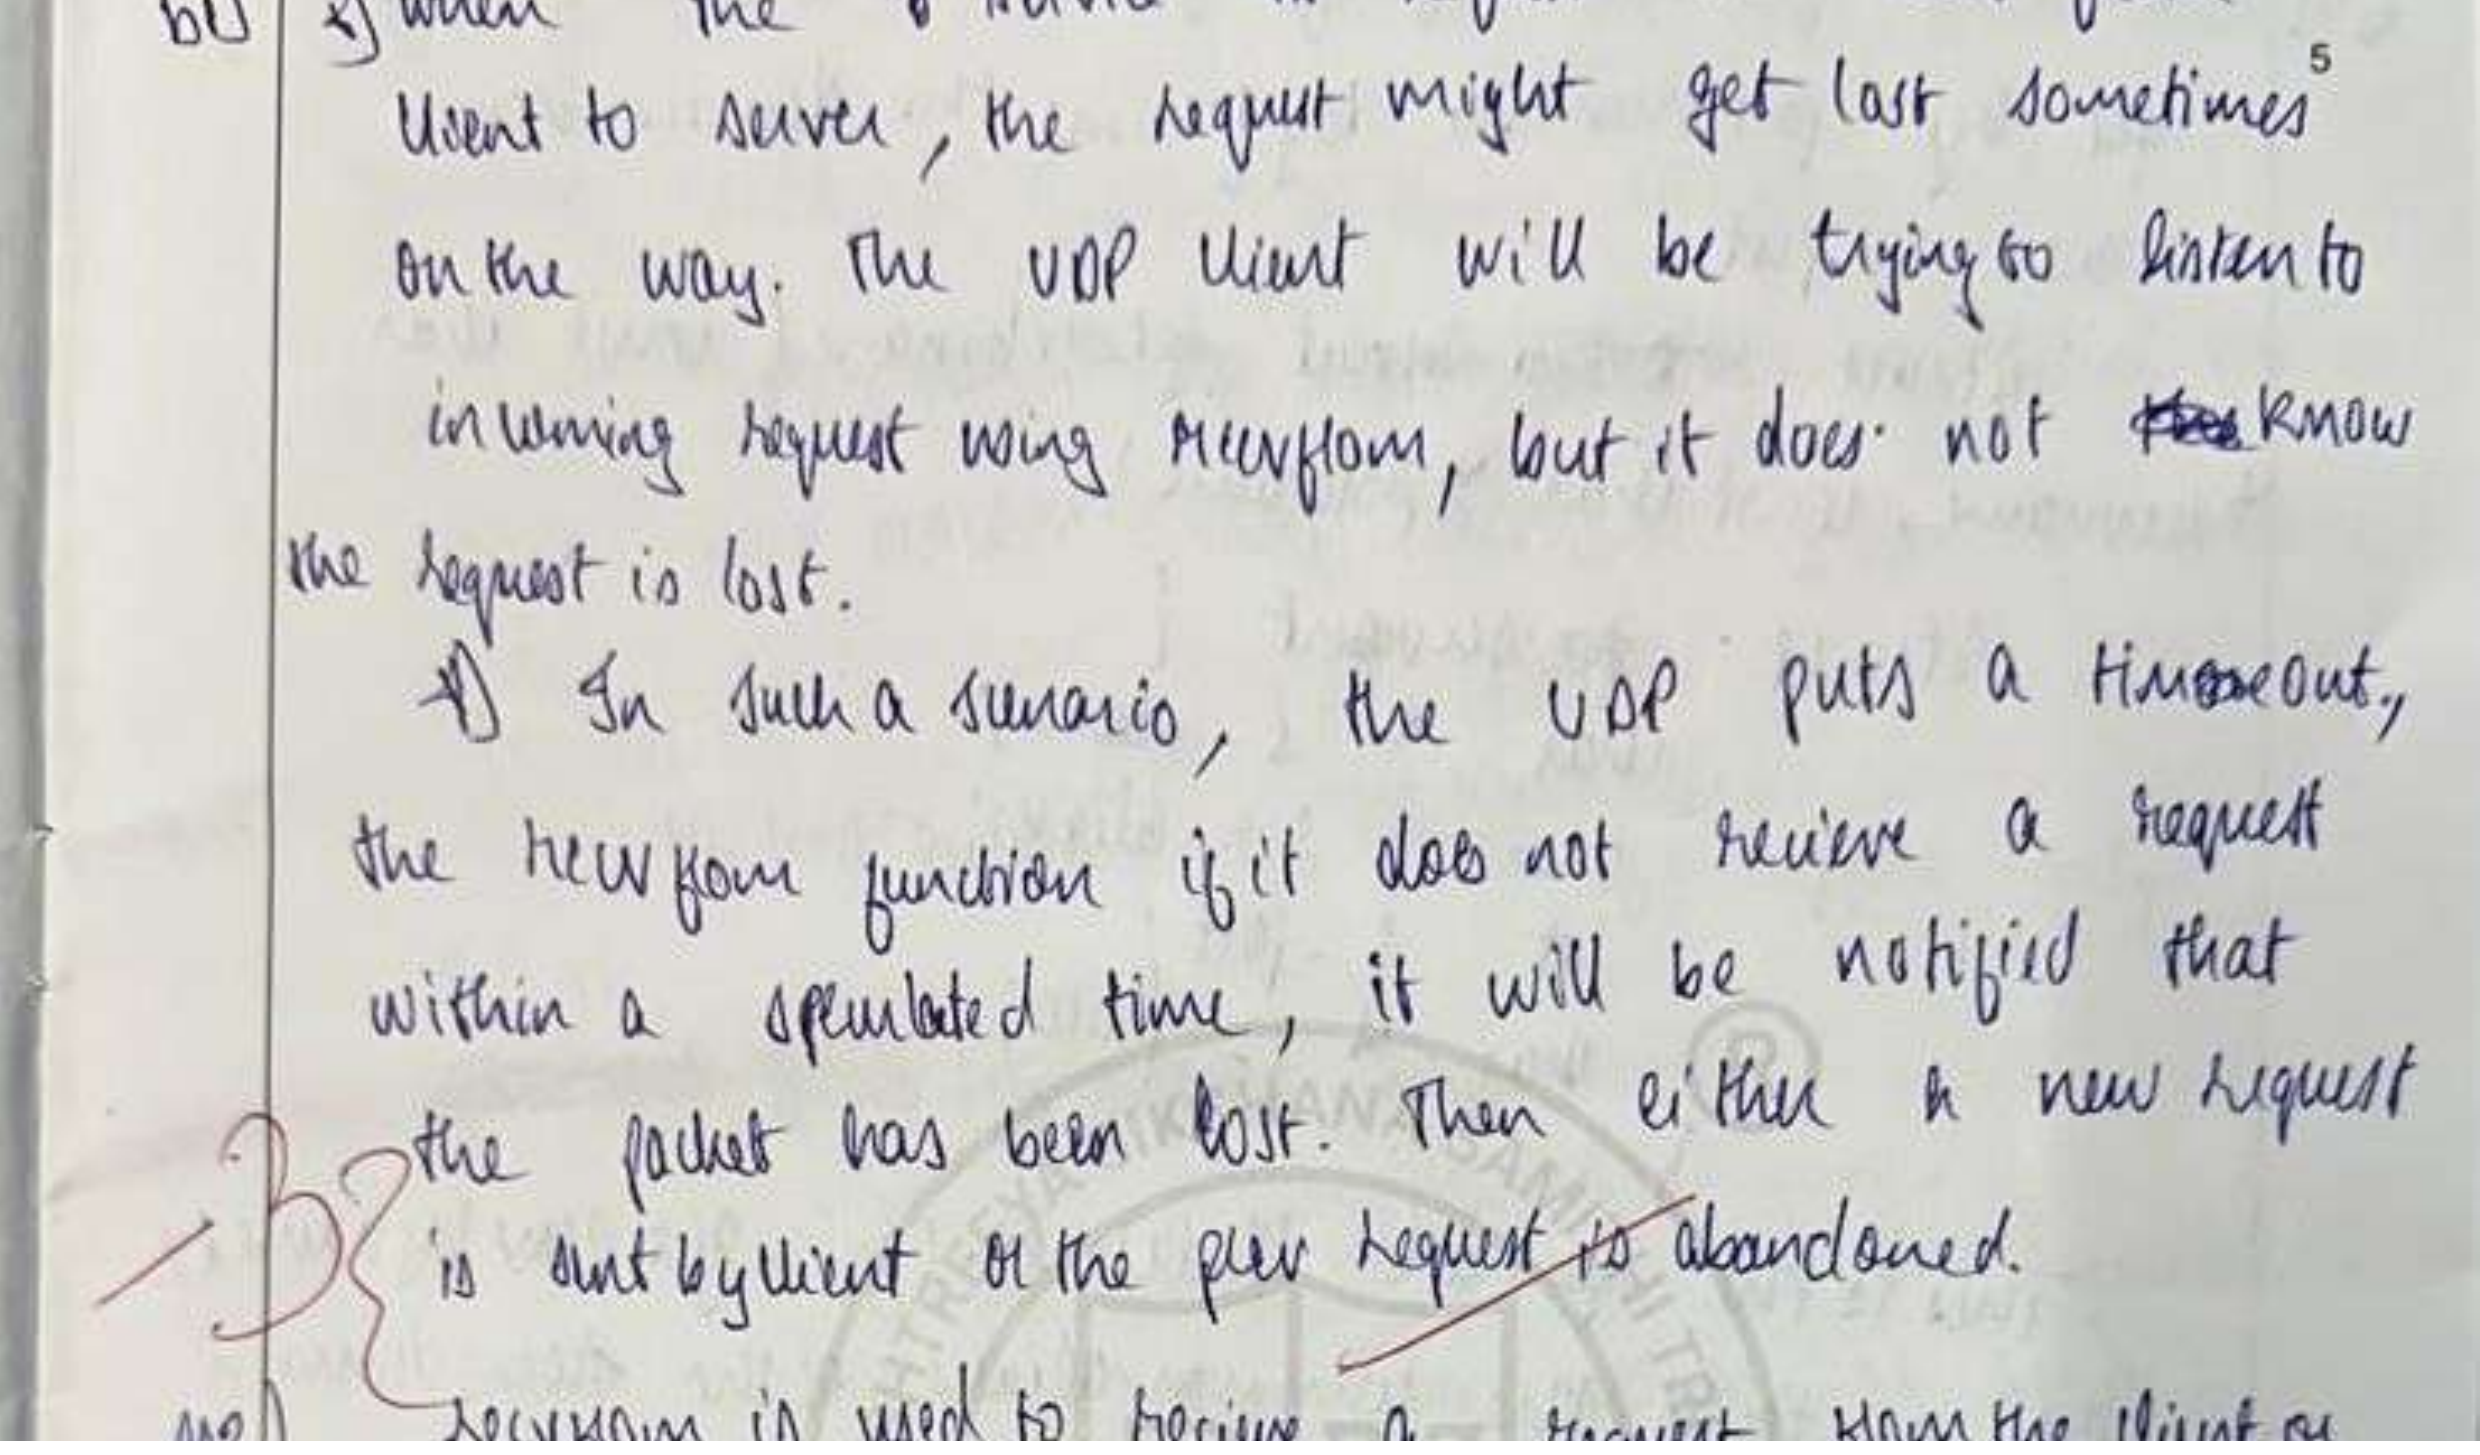 when the
5
client to server, the request might get lost sometimes
on the way. The UDP client will be trying to listen to
incoming request using recvfrom, but it does not know
the request is lost.
In such a scenario, the UDP puts a timeout,
the recvfrom function if it does not recieve a request
within a time, it will be notified that
the packet has been lost. Then either a new request
is sent by client or the prev request is abandoned.
3
recvfrom is used to recieve a request from the client or